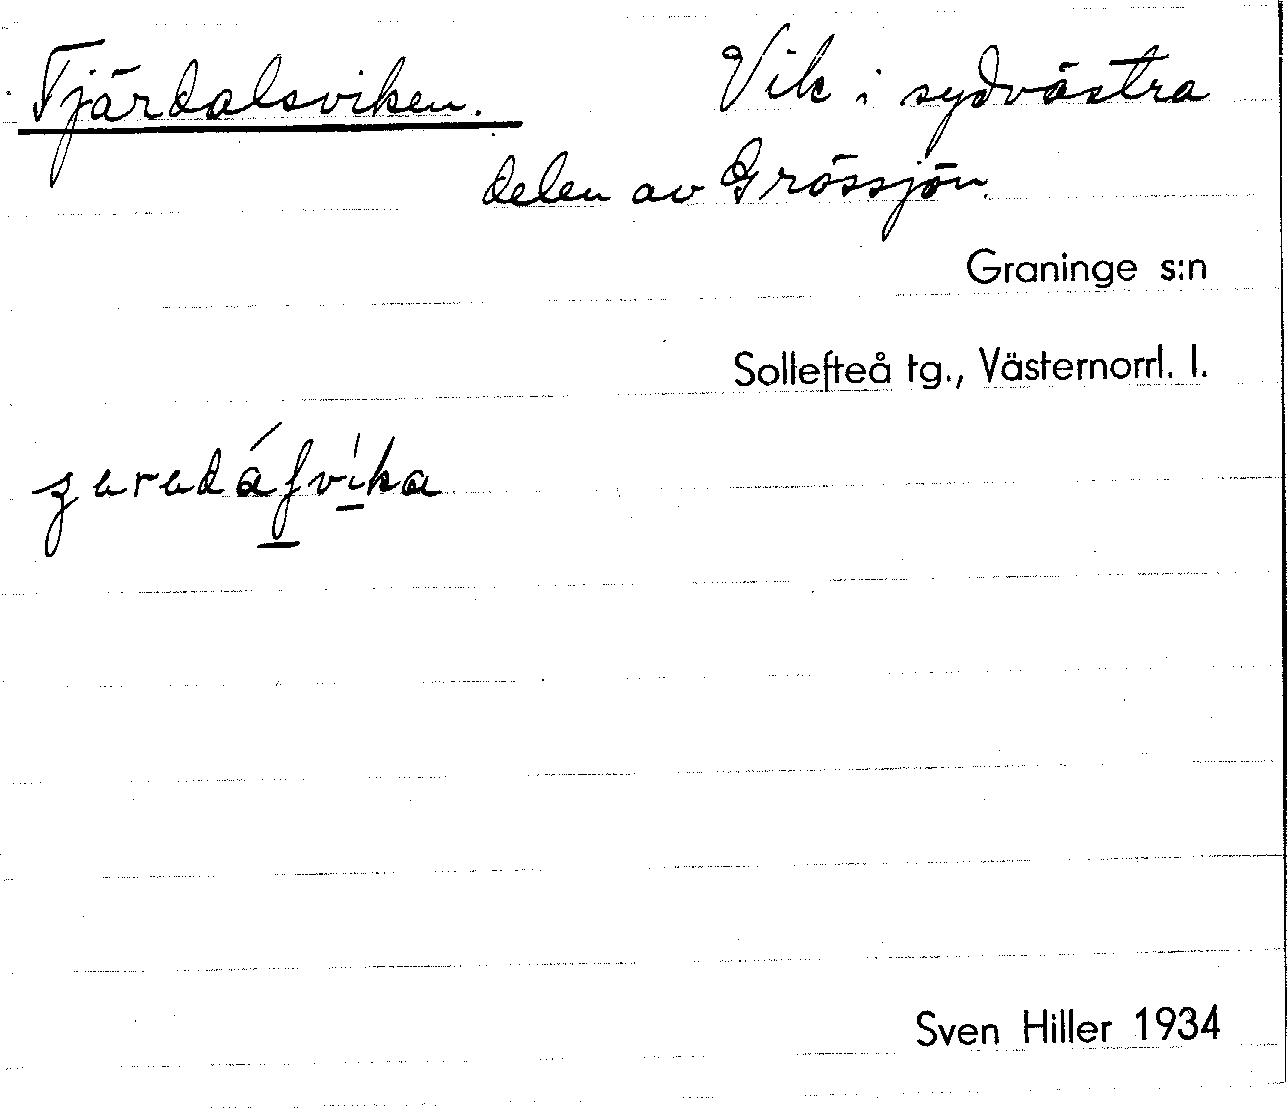 Tjärdalsviken. Vik i sydvästra
delen av Grössjön.
Graninge s:n
Sollefteå tg., Västernorrl. l.
Sven Hiller 1934